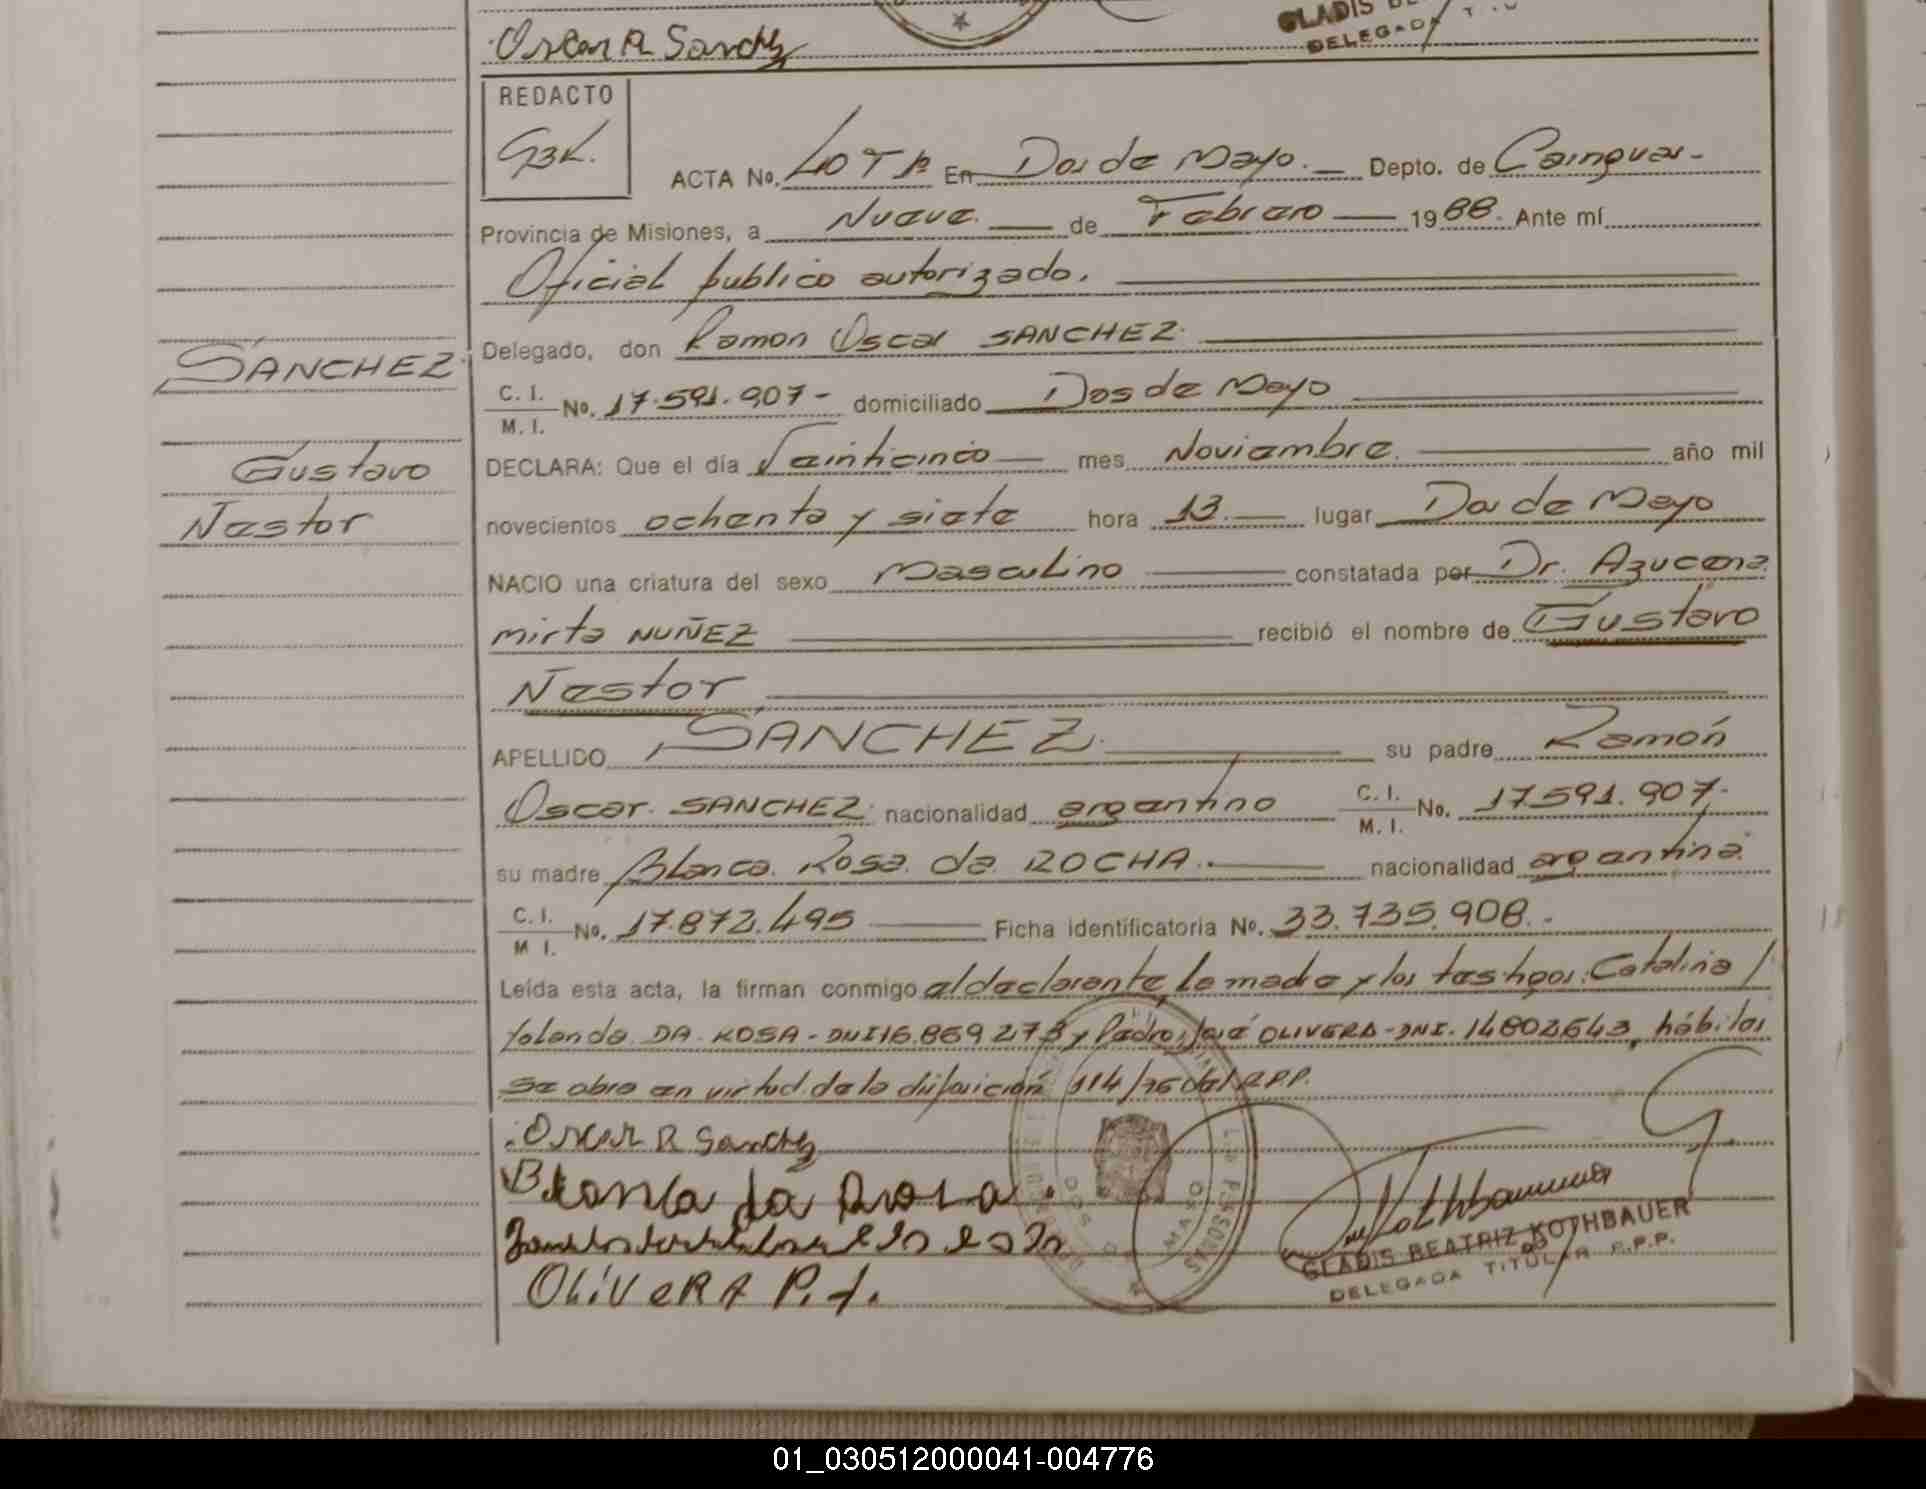 Oscar R Sanchz
GLADIS BE
DELEGADA T
REDACTO
GBK.
ACTA No. 40 Tº En Dos de Mayo. Depto. de Cainguas-
Provincia de Misiones, a Nueve. de Febrero 1988. Ante mí
Oficial publico autorizado.
Delegado, don Ramon Oscar SANCHEZ.
C. I. / M. I. No. 17.591.907- domiciliado Dos de Mayo
SANCHEZ.
DECLARA: Que el día Veinticinco mes Noviembre. año mil
Gustavo
novecientos ochenta y siete hora 13. lugar Dos de Mayo
Nestor
NACIO una criatura del sexo Masculino constatada por Dr. Azucena
mirta NUÑEZ recibió el nombre de Gustavo
Nestor
APELLIDO SANCHEZ. su padre Ramón
Oscar. SANCHEZ. nacionalidad argentino C. I. / M. I. No. 17.591.907.
su madre Blanca. Rosa. da ROCHA. nacionalidad argentina.
C. I. / M I. No. 17.872.495 Ficha identificatoria No. 33.735.908.-
Leída esta acta, la firman conmigo el declarante, la madre y los testigos: Catalina
Yolanda DA ROSA - DNI 16.869.273 y Pedro José OLIVERA - DNI. 14802643, hábiles
se abre en virtud de la disposición 114/76 del R.P.P.
Oscar R Sanchz
Blanca da Rocha.
OLiVeRA P. J.
DOS D MAYO
LAS PERSONAS
GLADIS BEATRIZ KOTHBAUER
DELEGADA TITULAR R.P.P.
01_030512000041-004776